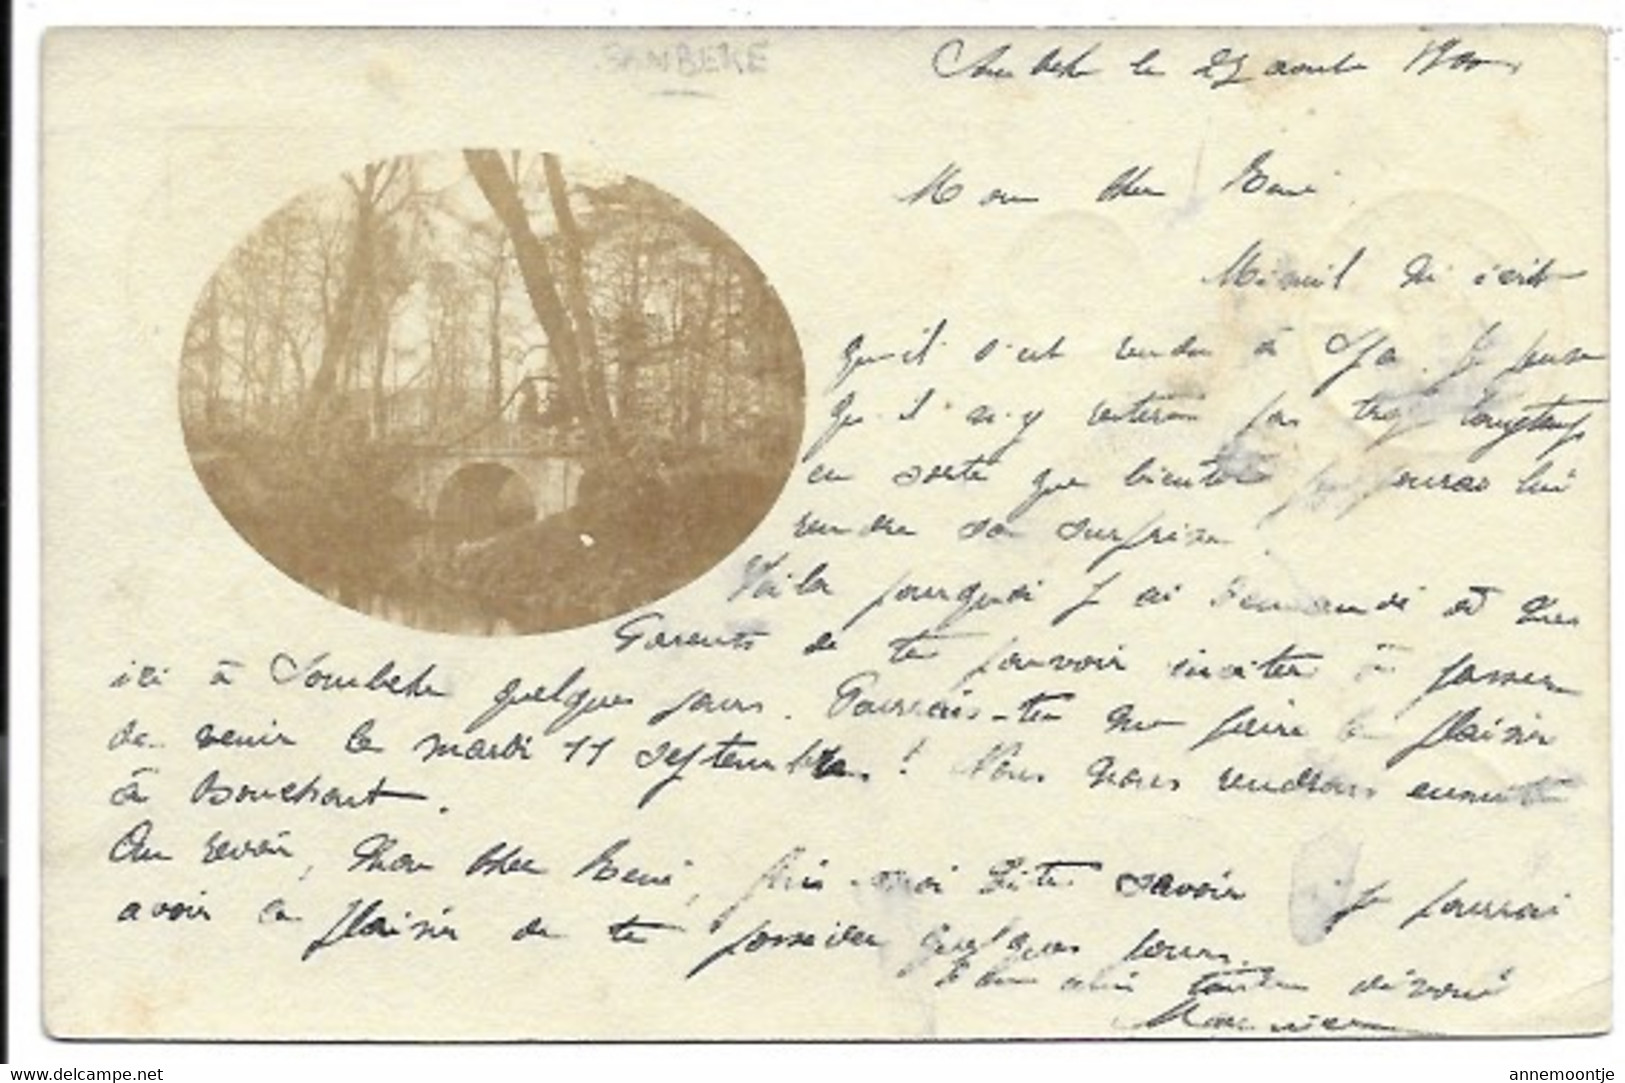 SAMBEKE
le 27 août 1900
Mon cher René
m'écrit
qu'il s'est rendu à Spa. Je pense
qu'il n'y restera pas trop longtemps
en sorte que bientôt je pourrai lui
rendre sa surprise.
Voilà pourquoi j'ai demandé à tes
Parents de te pouvoir inviter à passer
ici à Sombeke quelques jours. Pourrais-tu me faire le plaisir
de venir le mardi 11 septembre! Nous nous rendrons ensuite
à Bouchout.
Au revoir, mon cher René, fais-moi vite savoir si je pourrai
avoir le plaisir de te posséder quelques jours.
Ton ami tout dévoué
www.delcampe.net
annemoontje